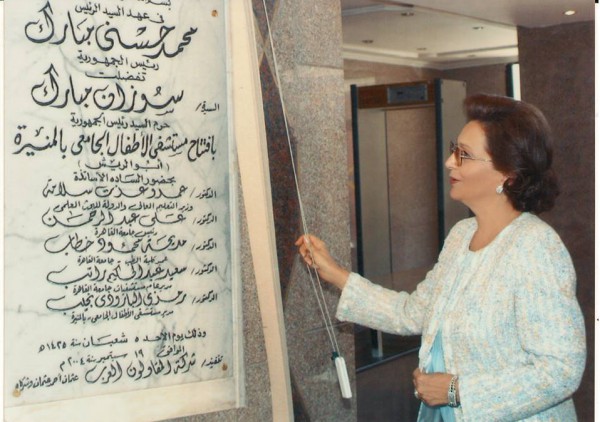 في عهد السيد الرئيس
محمد حسني مبارك
رئيس الجمهورية
تفضلت
السيدة/ سوزان مبارك
حرم السيد رئيس الجمهورية
بافتتاح مستشفى الأطفال الجامعى بالمنيرة
(أبو الريش)
بحضور الساده الأساتذة
الدكتور/ عمرو عزت سلامة
وزير التعليم العالى والدولة للبحث العلمى
الدكتور/ على عبد الرحمن
رئيس جامعة القاهرة
الدكتور/ مديحة محمود خطاب
عميد كلية الطب جامعة القاهرة
الدكتور/ سعيد عبد الحكيم راتب
مدير عام مستشفيات جامعة القاهرة
الدكتور/ رمزى البارودى نجيب
مدير مستشفى الأطفال الجامعى بالمنيرة
وذلك يوم الأحد ٥ شعبان سنة ١٤٢٥هـ
الموافق ١٩ سبتمبر سنة ٢٠٠٤م
تنفيذ/ شركة المقاولون العرب عثمان أحمد عثمان وشركاه